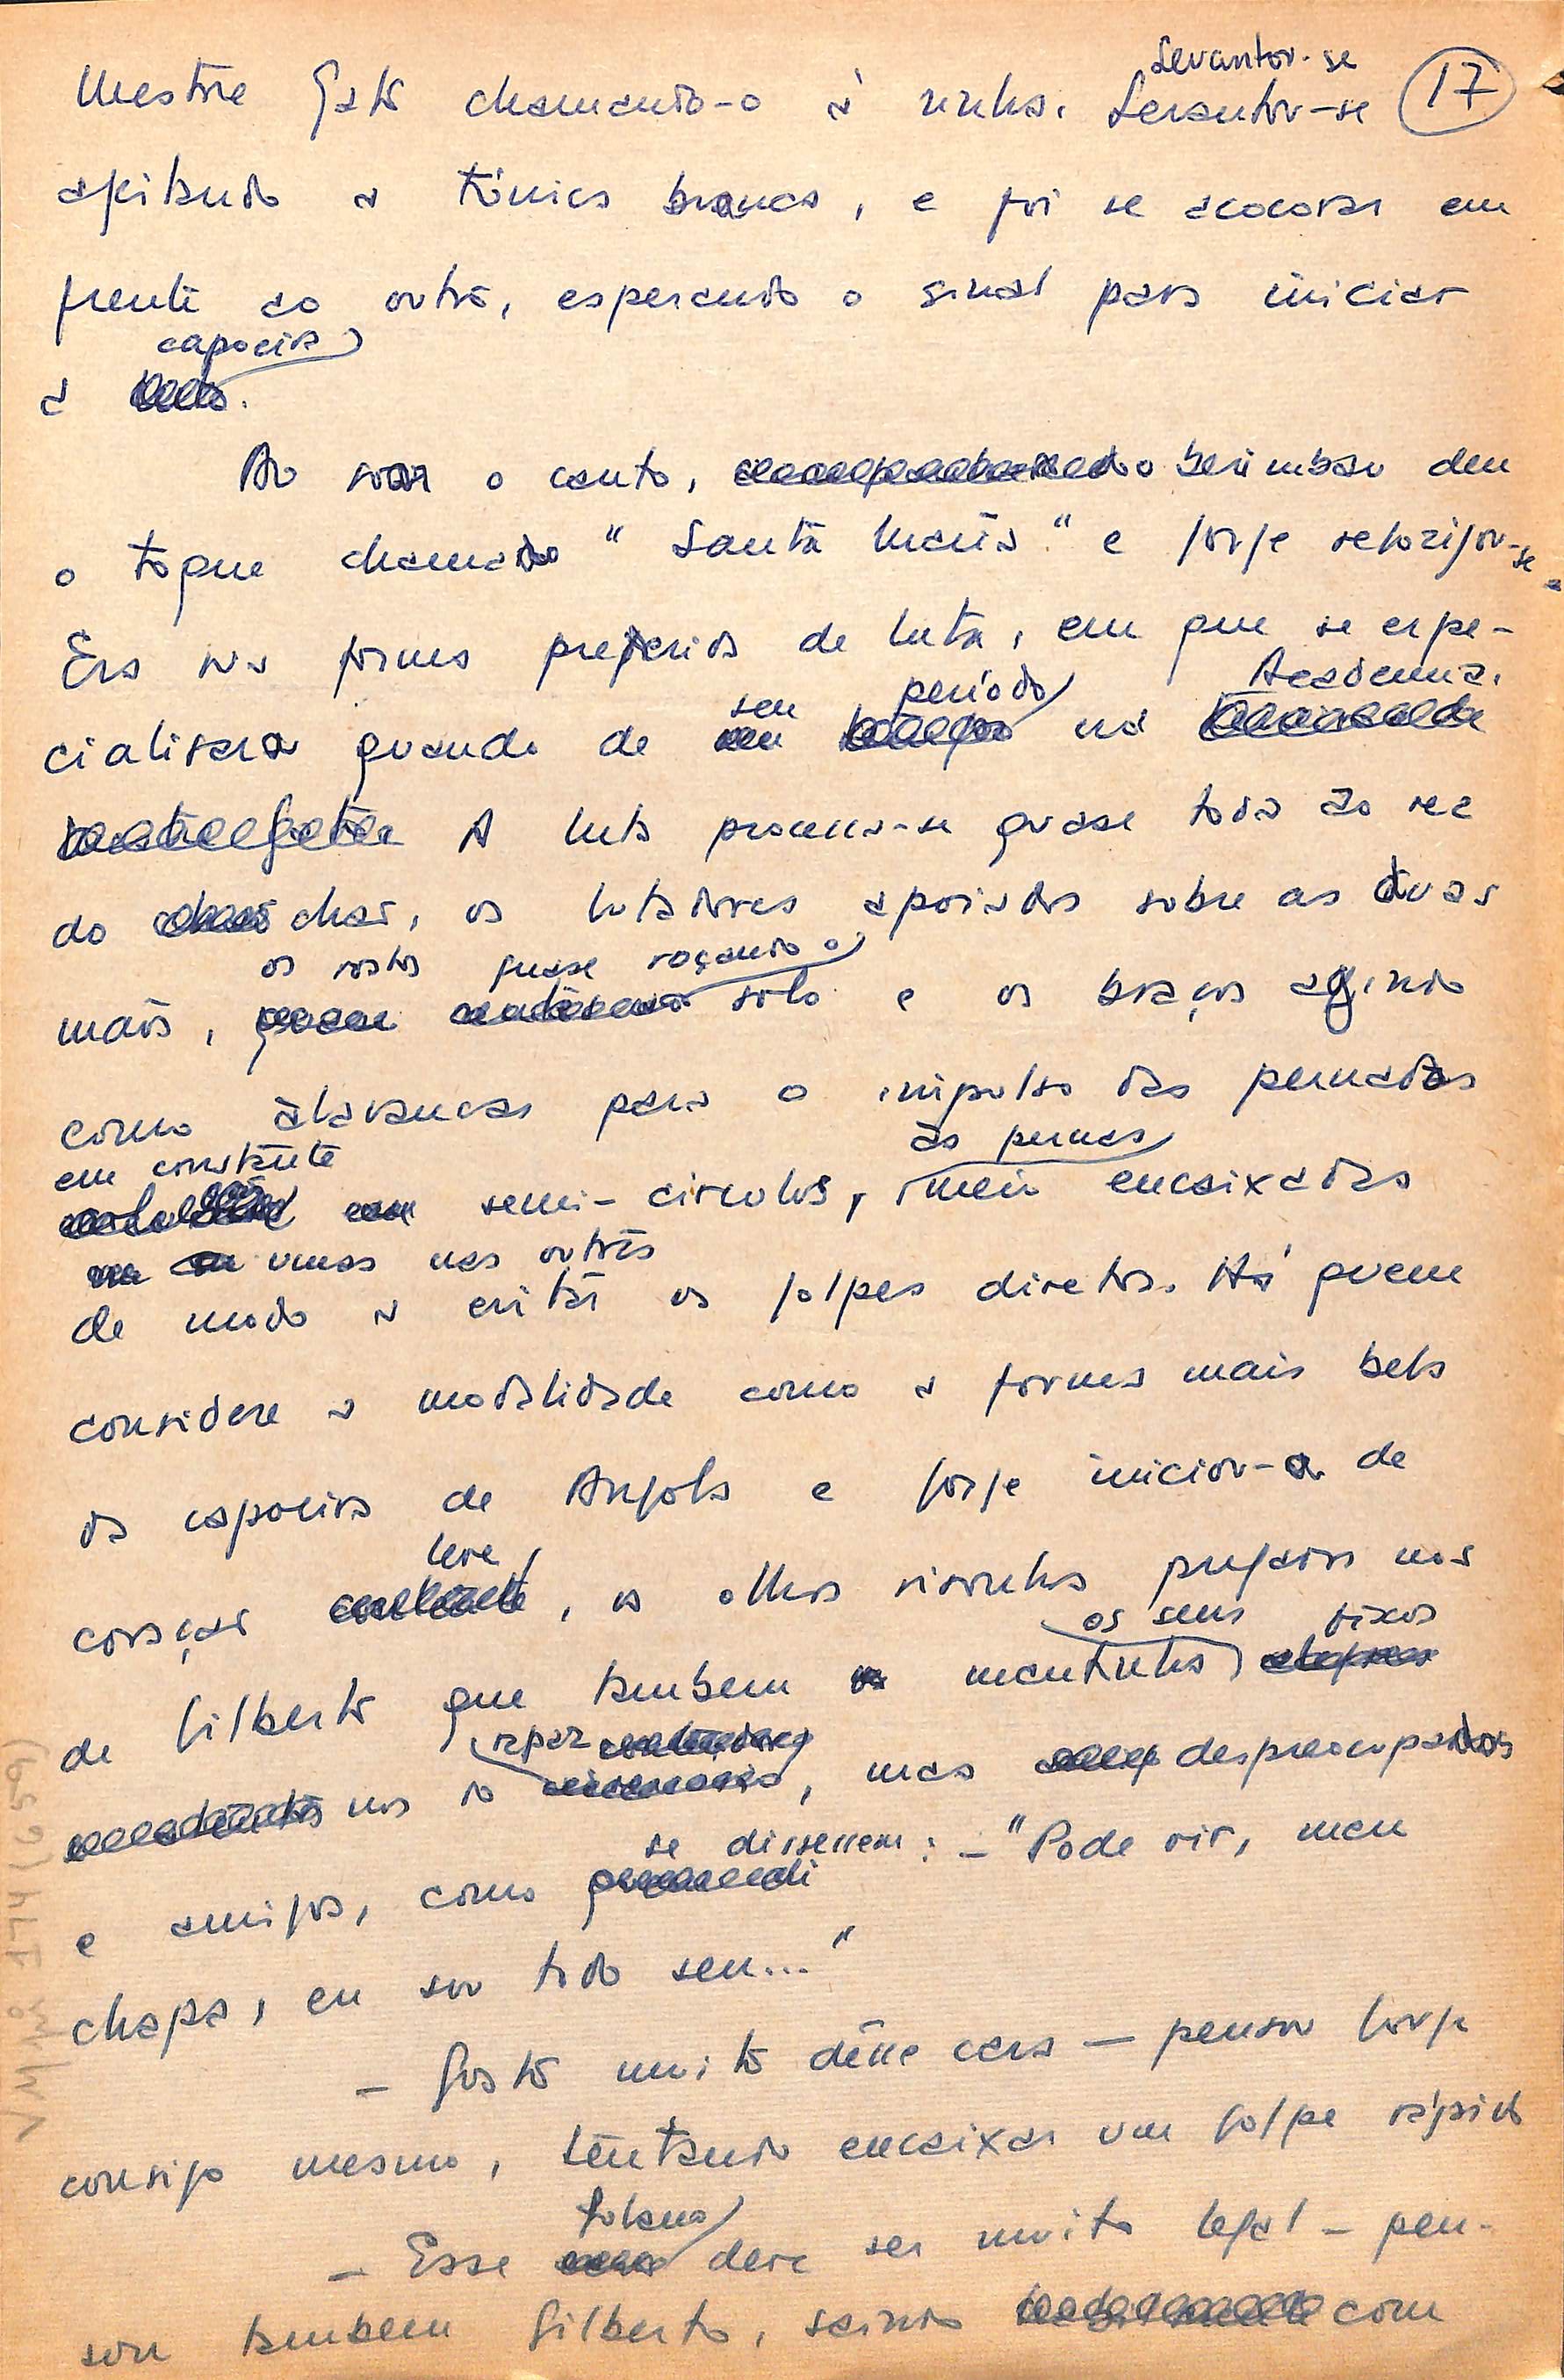 Levantou-se
Mestre Gato chamando-o à rinha. Levantou-se 17
agitando a túnica branca, e foi se acocorar em
frente ao outro, esperando o sinal para iniciar
capoeira
a
Ao soar o canto, o berimbau deu
o toque chamado "Santa Maria" e Jorge regozijou-se.
Era sua forma preferida de luta, em que se espe-
seu período Academia.
cialisara quando de na
A luta processa-se quase toda ao rez
do chão, os lutadores apoiados sobre as duas
os rostos quase roçando o
mãos, solo e os braços agindo
como alavancas para o impulso das pernadas
as pernas
em constante
semi-circulos, meio encaixadas
umas nas outras
de modo a evitar os golpes diretos. Há quem
considere a modalidade como a forma mais bela
da capoeira de Angola e Jorge iniciou-a de
leve
coração, os olhos pregados nos
os seus fixos
de Gilberto que tambem mantinha
rapaz
nos do, mas despreocupados
se dissessem: - "Pode vir, meu
e amigos, como
chapa, eu sou todo seu..."
- Gosto muito dêsse cara - pensou Jorge
consigo mesmo, tentando encaixar um golpe rápido
fulano
- Esse deve ser muito legal - pen-
sou tambem Gilberto, saindo com